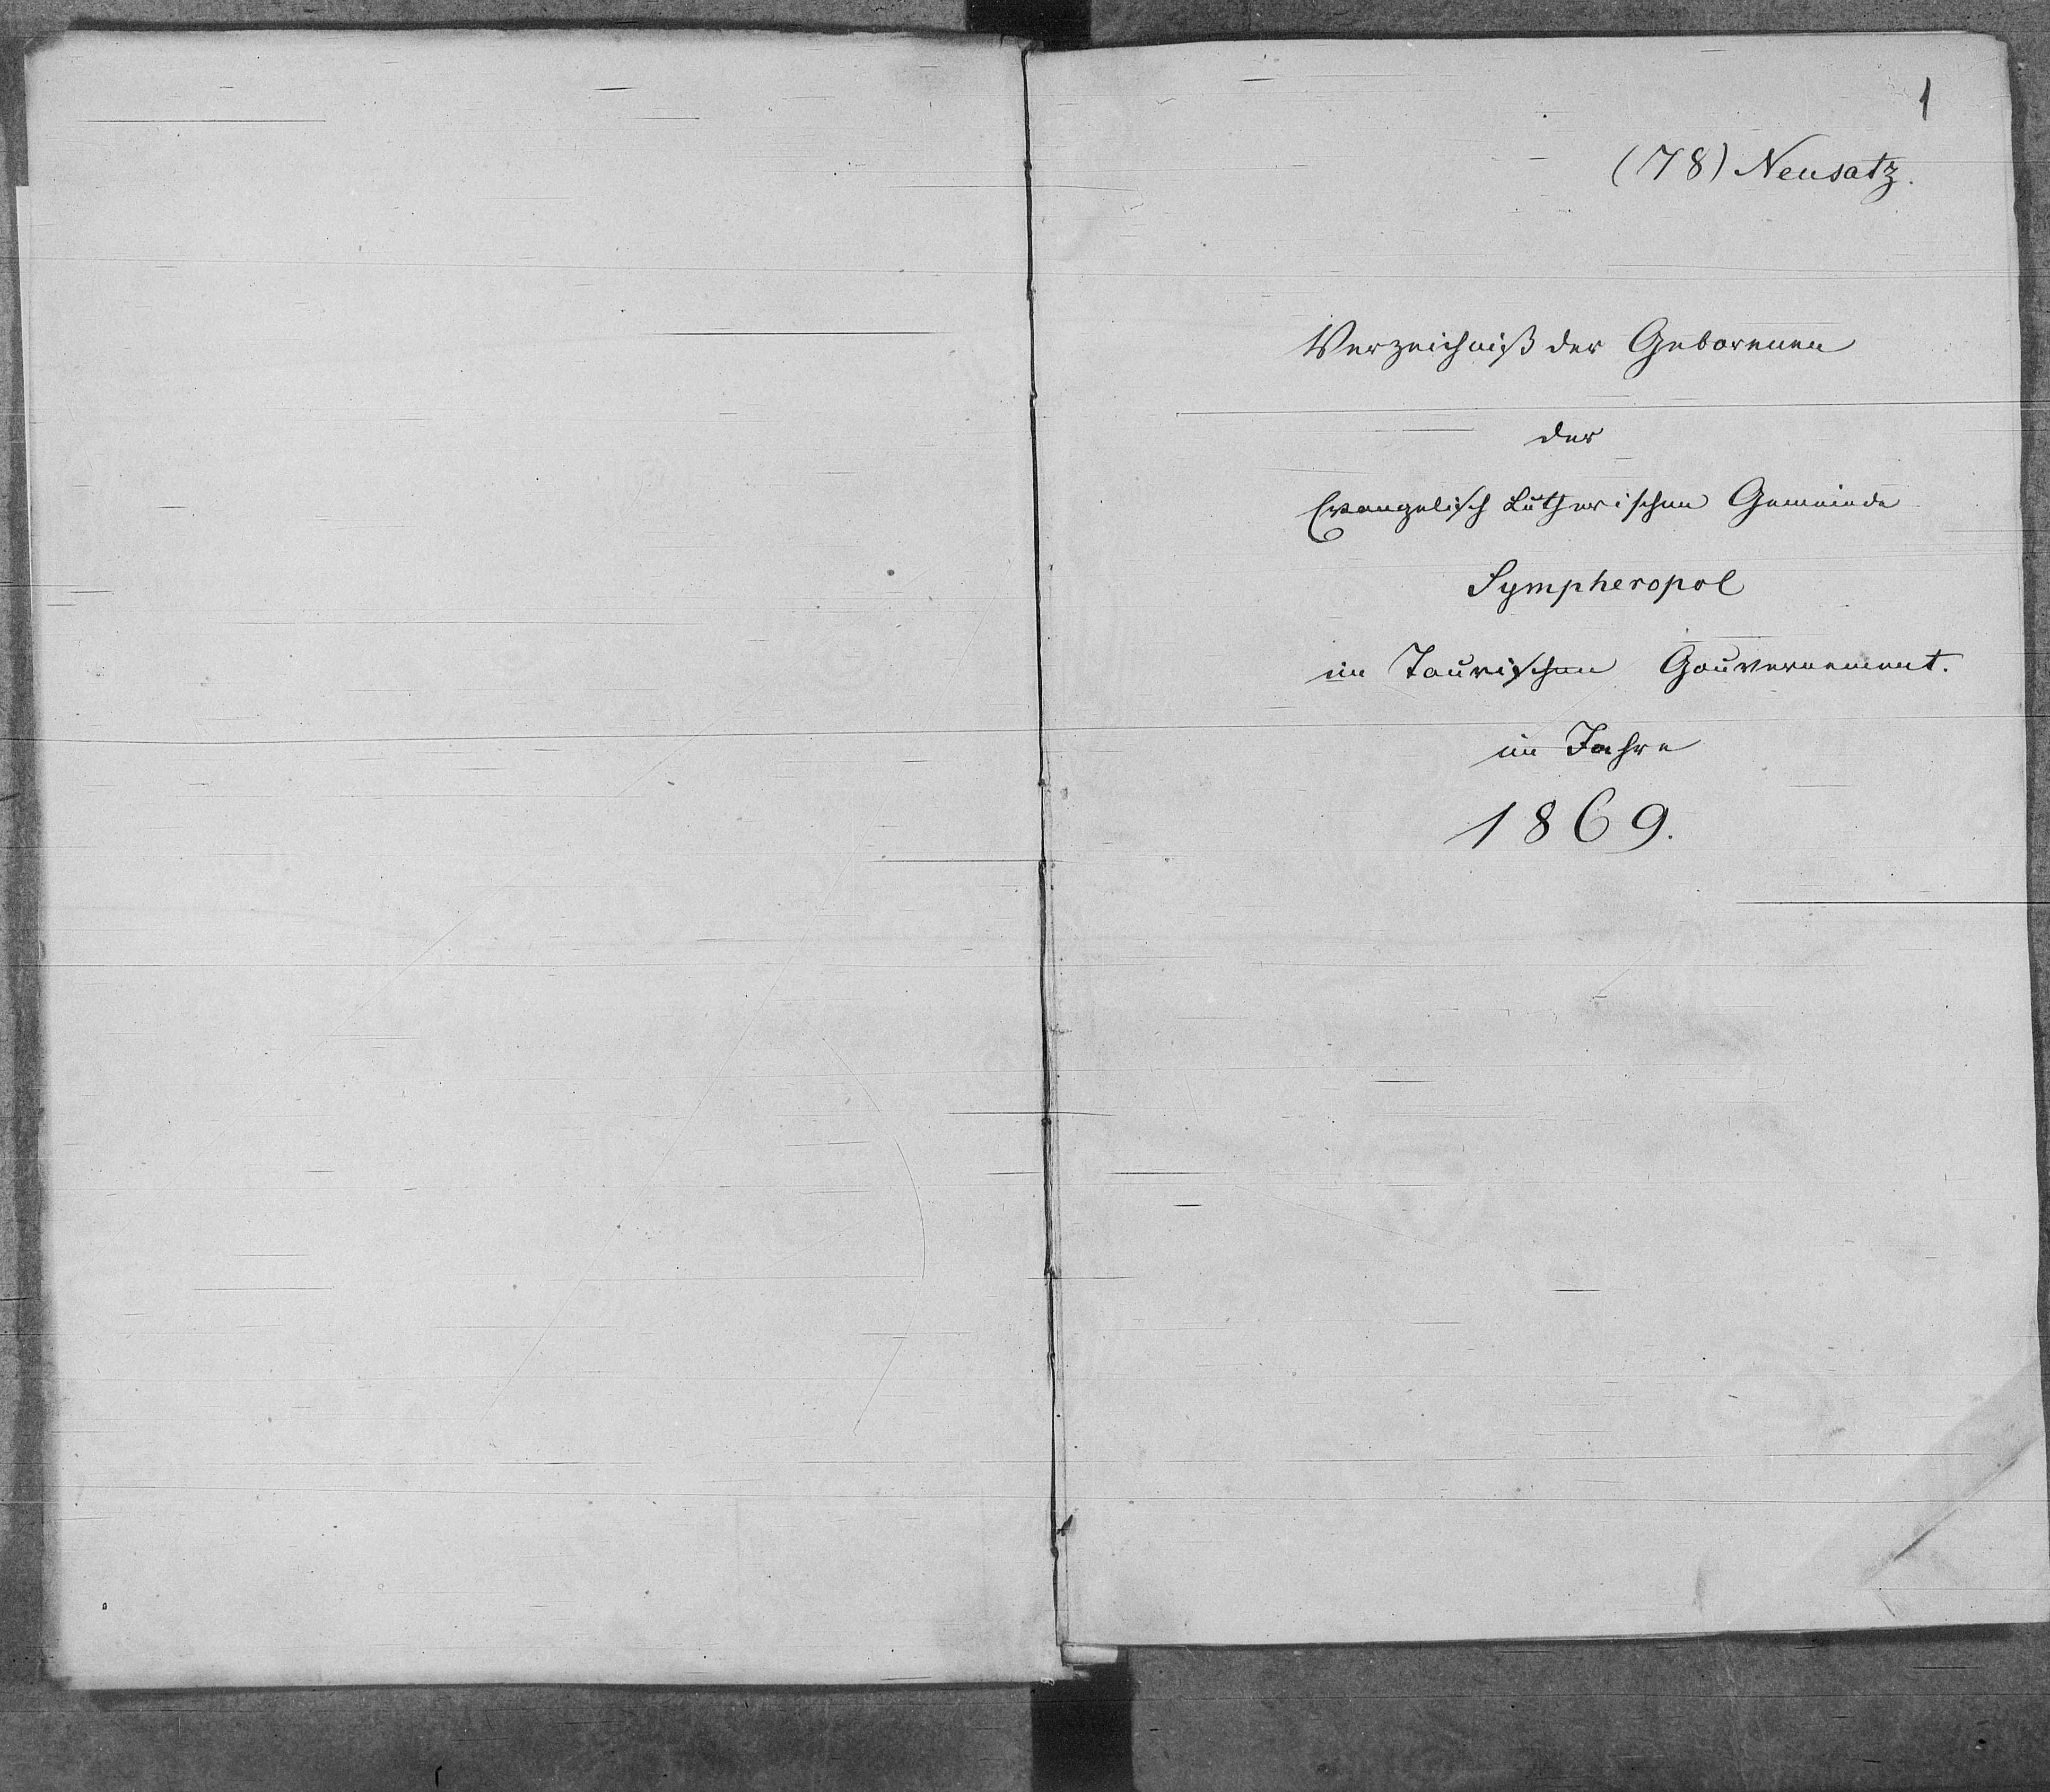 1
(78) Neusatz.
Verzeichniß der Geborenen
der
Evangelisch Lutherischen Gemeinde
Sympheropol
im Taurischen Gouvernement.
im Jahre
1869.